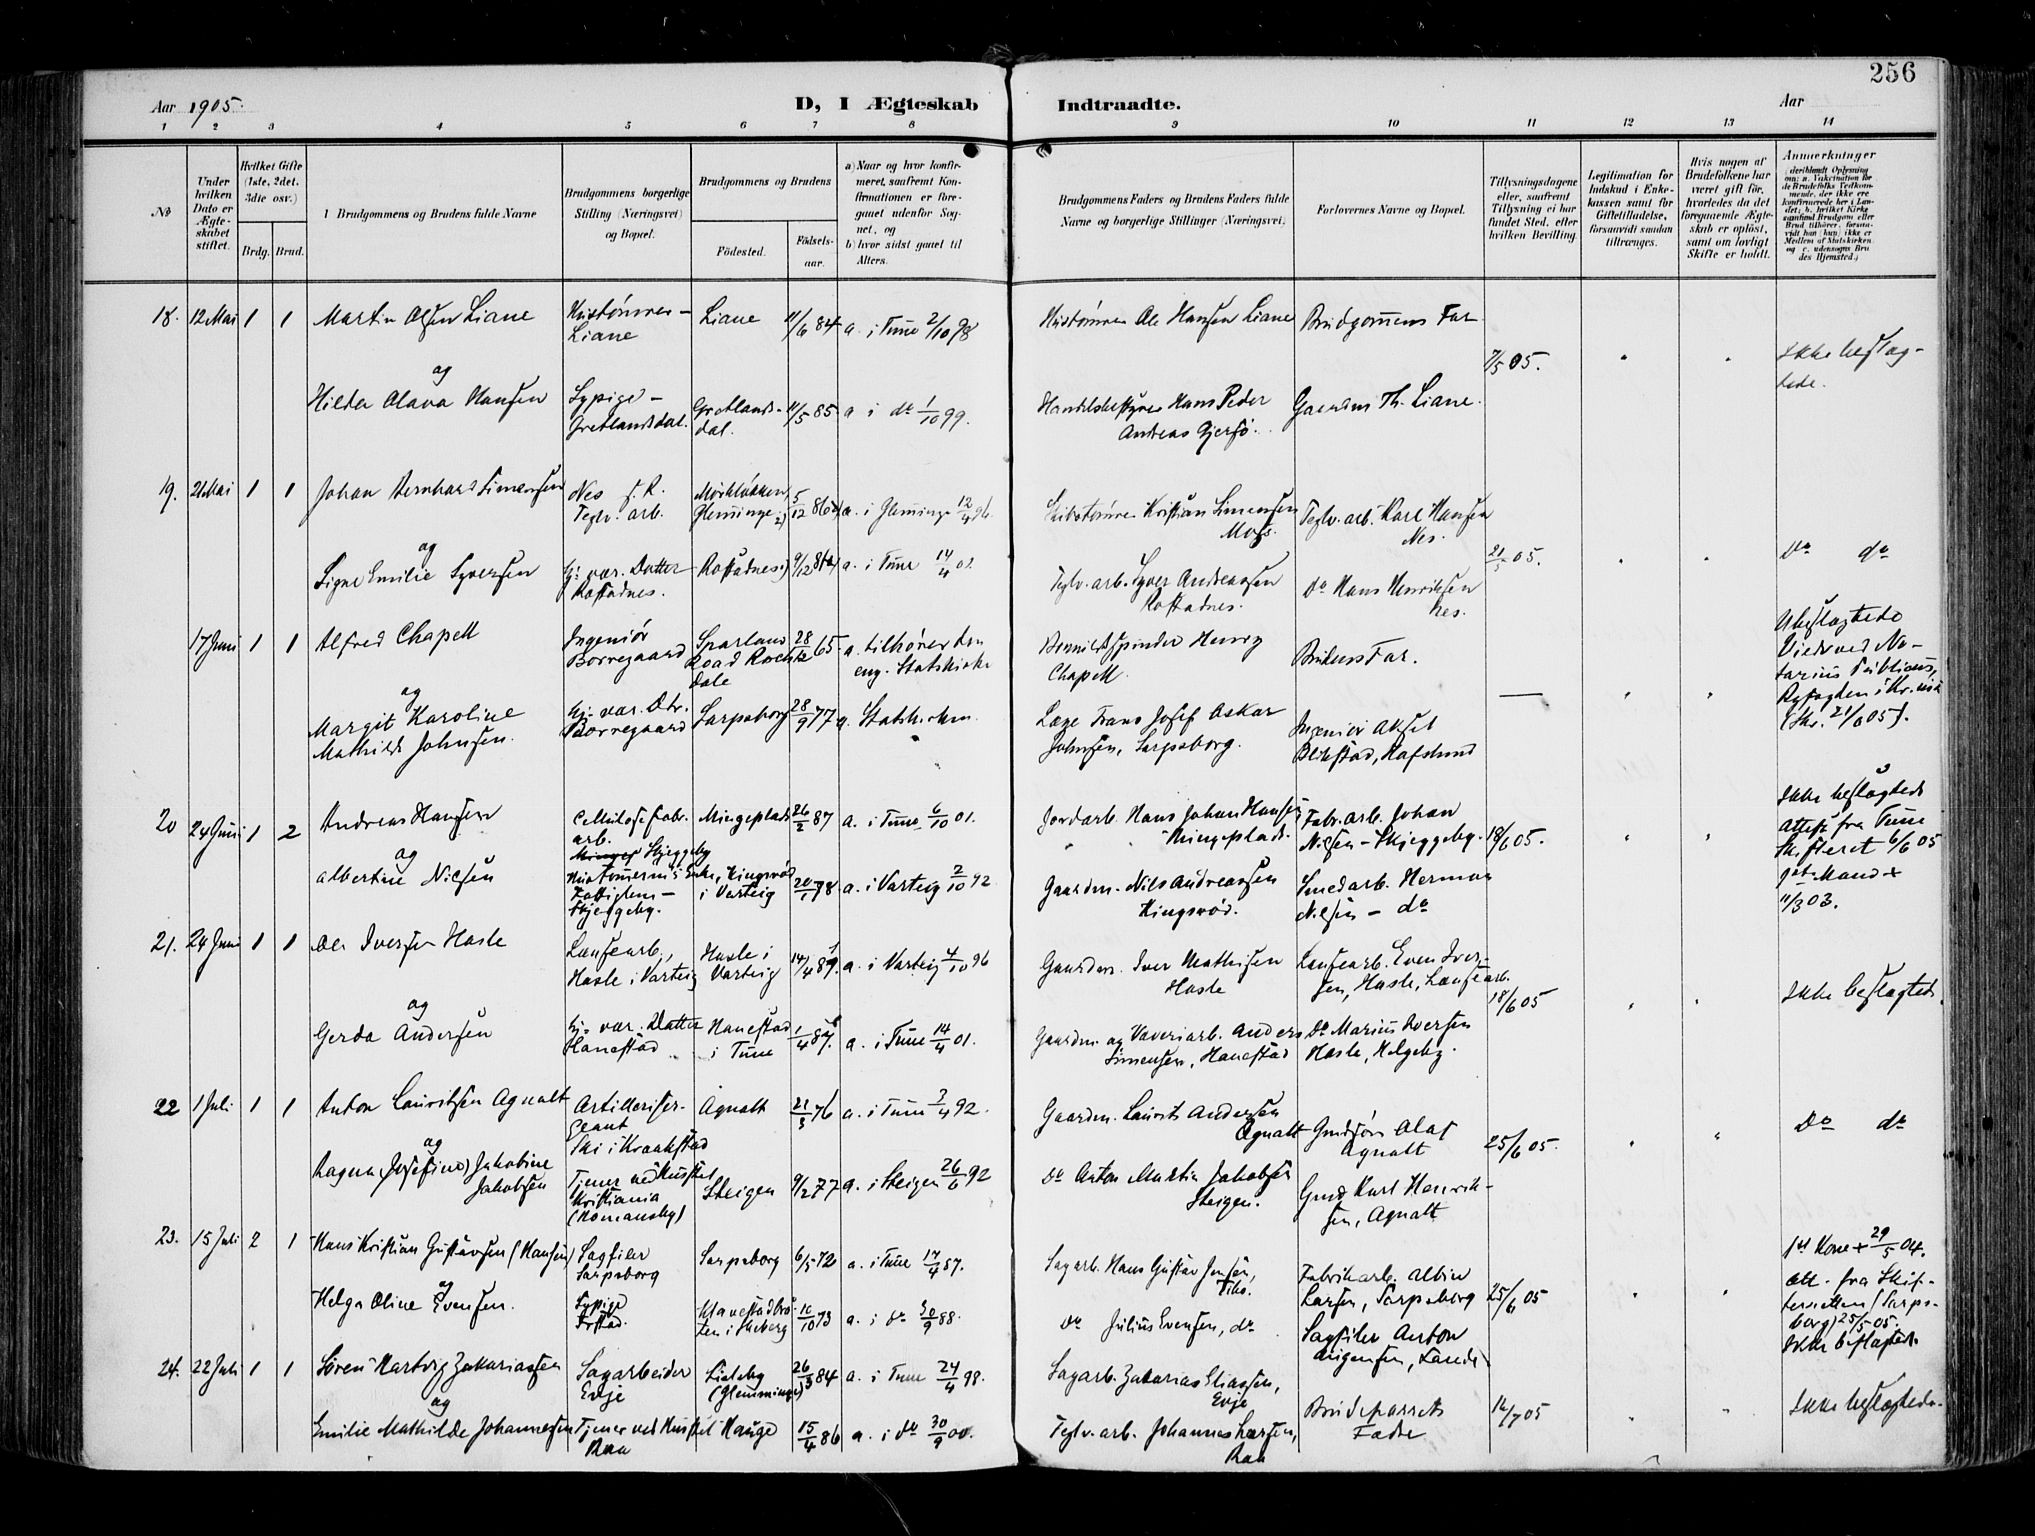 256
Aar 1905.
D, I Ægteskab Indtraadte.
Aar
1 2 3 4 5 6 7 8 9 10 11 12 13 14
No
Under hvilken Dato er Ægteskabet stiftet.
Hvilket Gifte (1ste, 2det, 3die osv.)
Brdg. Brud.
Brudgommens og Brudens fulde Navne
Brudgommens borgerlige Stilling (Næringsvei) og Bopæl.
Brudgommens og Brudens
Födested.
Födselsaar.
a) Naar og hvor konfirmeret, saafremt Konfirmationen er foregaaet udenfor Sognet, og
b) hvor sidst gaaet til Alters.
Brudgommens Faders og Brudens Faders fulde Navne og borgerlige Stillinger (Næringsvei)
Forlovernes Navne og Bopæl.
Tillysningsdagene eller, saafremt Tillysning ei har fundet Sted, efter hvilken Bevilling.
Legitimation for Indskud i Enkekassen samt for Giftetilladelse, forsaavidt saadan tiltrænges.
Hvis nogen af Brudefolkene har været gift för, hvorledes da det foregaaende Ægteskab er oplöst, samt om lovligt Skifte er holdt.
Anmerkninger
18. 12 Mai 1 1 Martin Olsen Liane
Hustømrer - Liane
Liane 11/6 84 a. i Tune 2/10 98
Hustømrer Ole Hansen Liane
Brudgommens Far
7/5 05.
Ikke beslægtede.
og
Hilda Olava Hansen
Sypige - Gretlandsdal.
Gretlandsdal. 11/5 85 a i do 1/10 99.
Handelsbestyrer Hans Peder Andreas Gjersø.
Gaardm Th. Liane.
19. 21 Mai 1 1 Johan Bernhard Simensen
Nes f. R. Teglv. arb.
Glemminge 5/12 a. i Glemminge 12/4 96
Skibstømrer Kristian Simensen Moss.
Teglv. arb. Karl Hansen Nes.
21/5 05.
Do do
og
Signe Emilie Syversen
Hj. vær. Datter Rostadnes.
Rostadnes 9/12 a. i Tune 14/4 01.
Teglv. arb. Syver Andreassen Rostadnes.
do Hans Henriksen Nes.
17 Juni 1 1 Alfred Chapell
Ingeniør Borregaard
Sparland Road Rochdale 28/12 65 a. tilhører den eng. Statskirke
Bomuldsspinder Henry Chapell
Brudens Far.
Ubeslægtede
Viede ved Notarius Publicus,
og
Margit Karoline Mathilde Johnsen.
Hj. vær. Dtr. Borregaard
Sarpsborg 28/9 77 a. Statskirken
Læge Frans Josef Oskar Johnsen, Sarpsborg.
Ingeniør Aksel Blikstad, Hafslund
20 24 Juni 1 2 Andreas Hansen
Cellulosefabr. arb. Skjeggeby
Mingeplads 26/2 87 a. i Tune 6/10 01.
Jordarb. Hans Johan Hansen Mingeplads.
Fabr. arb. Johan Nilsen - Skjeggeby.
18/6 05.
Ikke beslægtede
Attest fra Tune
6/6 05
Mand +
11/3 03.
og
Albertine Nilsen
Skjeggeby.
Kingsrød i Varteig 20/1 78 a. i Varteig 2/10 92
Gaardm. Nils Andreassen Kingsrød.
Smedarb. Herman Nilsen - do
21. 24 Juni 1 1 Ole Iversen Hasle
Lænsearb., Hasle i Varteig
Hasle i Varteig 14/4 81. a. i Varteig 4/10 96
Gaardm. Iver Mathisen Hasle
Lænsearb. Even Iversen, Hasle, Lænsearb.
18/6 05
Ikke beslægtede.
og
Gerda Andersen
Hj. vær. Datter Hanestad
Hanestad i Tune 1/4 87. a. i Tune 14/4 01.
Gaardm. og Væveriarb. Anders Simensen, Hanestad
Do Marius Iversen Hasle, Helgeby.
22 1 Juli 1 1 Anton Lauritsen Agnalt
Artillerisergeant Ski i Kraakstad
Agnalt 21/3 76 a. i Tune 3/4 92.
Gaardm. Laurits Andersen Agnalt
Grudsør Olaf Agnalt
25/6 05.
Do do
og
Ragna (Josefine) Jakobine Jakobsen
Tjener ved Huset Kristiania (Homansby)
Steigen 9/2 77 a. i Steigen 26/6 92
do Anton Martin Jakobsen Steigen.
Karl Henriksen, Agnalt
23. 15 Juli 2 1 Hans Kristian Gustavsen (Hansen)
Sagfiler Sarpsborg
Sarpsborg 6/5 72 a. i Tune 17/4 87.
Sagarb. Hans Gustav Jensen,
Fabrikarb. Albin Larsen, Sarpsborg
25/6 05
1st Kone + 29/5 04.
att. fra Skifteretten (Sarpsborg) 25/5 05.
Ikke beslægtede
og
Helga Oline Evensen.
Sypige
i Skeberg 10/10 73 a. i do 30/9 88.
do Julius Evensen, do
Sagfiler Anton
24. 22 Juli 1 1 Søren Hartvig Zakariassen
Sagarbeider Evje
Lisleby (Glemminge) 26/3 84 a. i Tune 24/4 98.
Sagarb. Zakarias Eliassen, Evje
Brudeparrets Fædre
16/7 05
Ikke beslægtede.
og
Emilie Mathilde Johannesen
Tjener ved Huset Raa
Hauge 15/4 86 a. i do 30/9 00.
Teglv. arb. Johannes Larsen, Raa